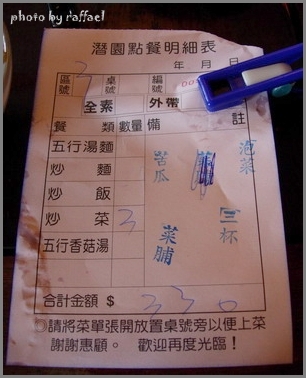 photo by raffael
潛園點餐明細表
年 月 日
區號 3 桌號 編號
全素 外帶
餐類 數量 備註
五行湯麵
炒麵
炒飯
炒菜 3
五行香菇湯
泡菜
三杯
苦瓜
菜脯
合計金額 $ 330
請將菜單張開放置桌號旁以便上菜
謝謝惠顧。 歡迎再度光臨！